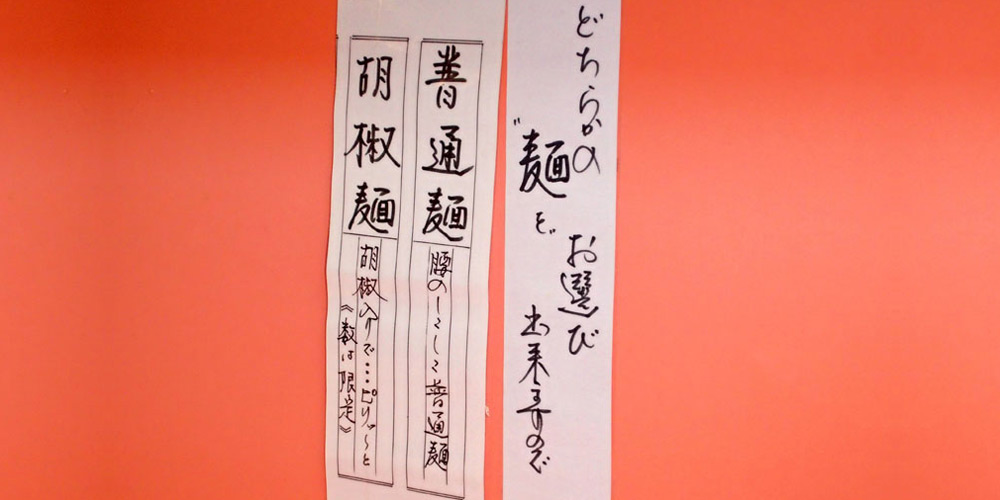 どちらかの
"麺を"
お選び
出来ますので
普通麺
腰のしこしこ普通麺
胡椒麺
胡椒入りで…ピリッ〜と
《数は限定》